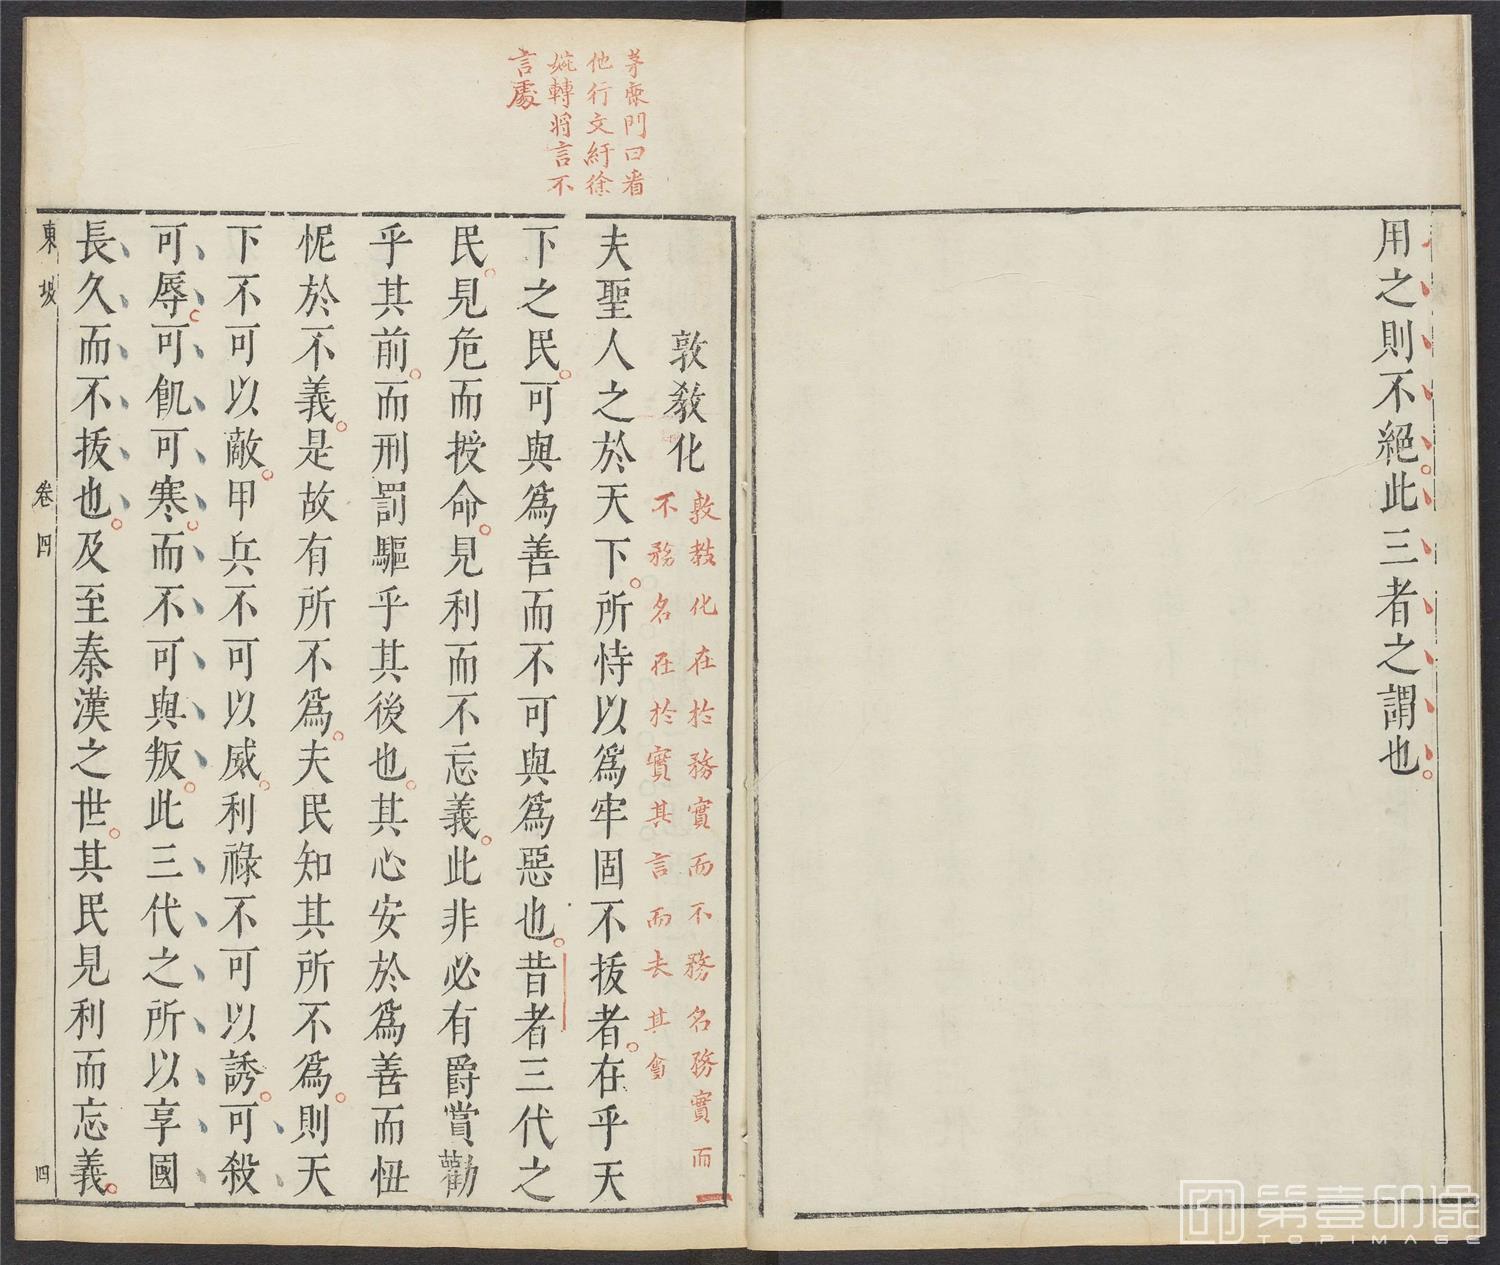 用之則不絕此三者之謂也
茅鹿門曰看
他行文紆徐
婉轉將言不
言處
敦教化
敦教化在於務實而不務名務實而
不務名在於實其言而夫其會
夫聖人之於天下所恃以爲牢固不拔者在乎天
下之民可與爲善而不可與爲惡也昔者三代之
民見危而授命見利而不忘義此非必有爵賞勸
乎其前而刑罰驅乎其後也其心安於爲善而忸
怩於不義是故有所不爲夫民知其所不爲則天
下不可以敵甲兵不可以威利祿不可以誘可殺
可辱可飢可寒而不可與叛此三代之所以享國
長久而不拔也及至秦漢之世其民見利而忘義
東坡
卷四
四
第壹印像
TOPIMAGE